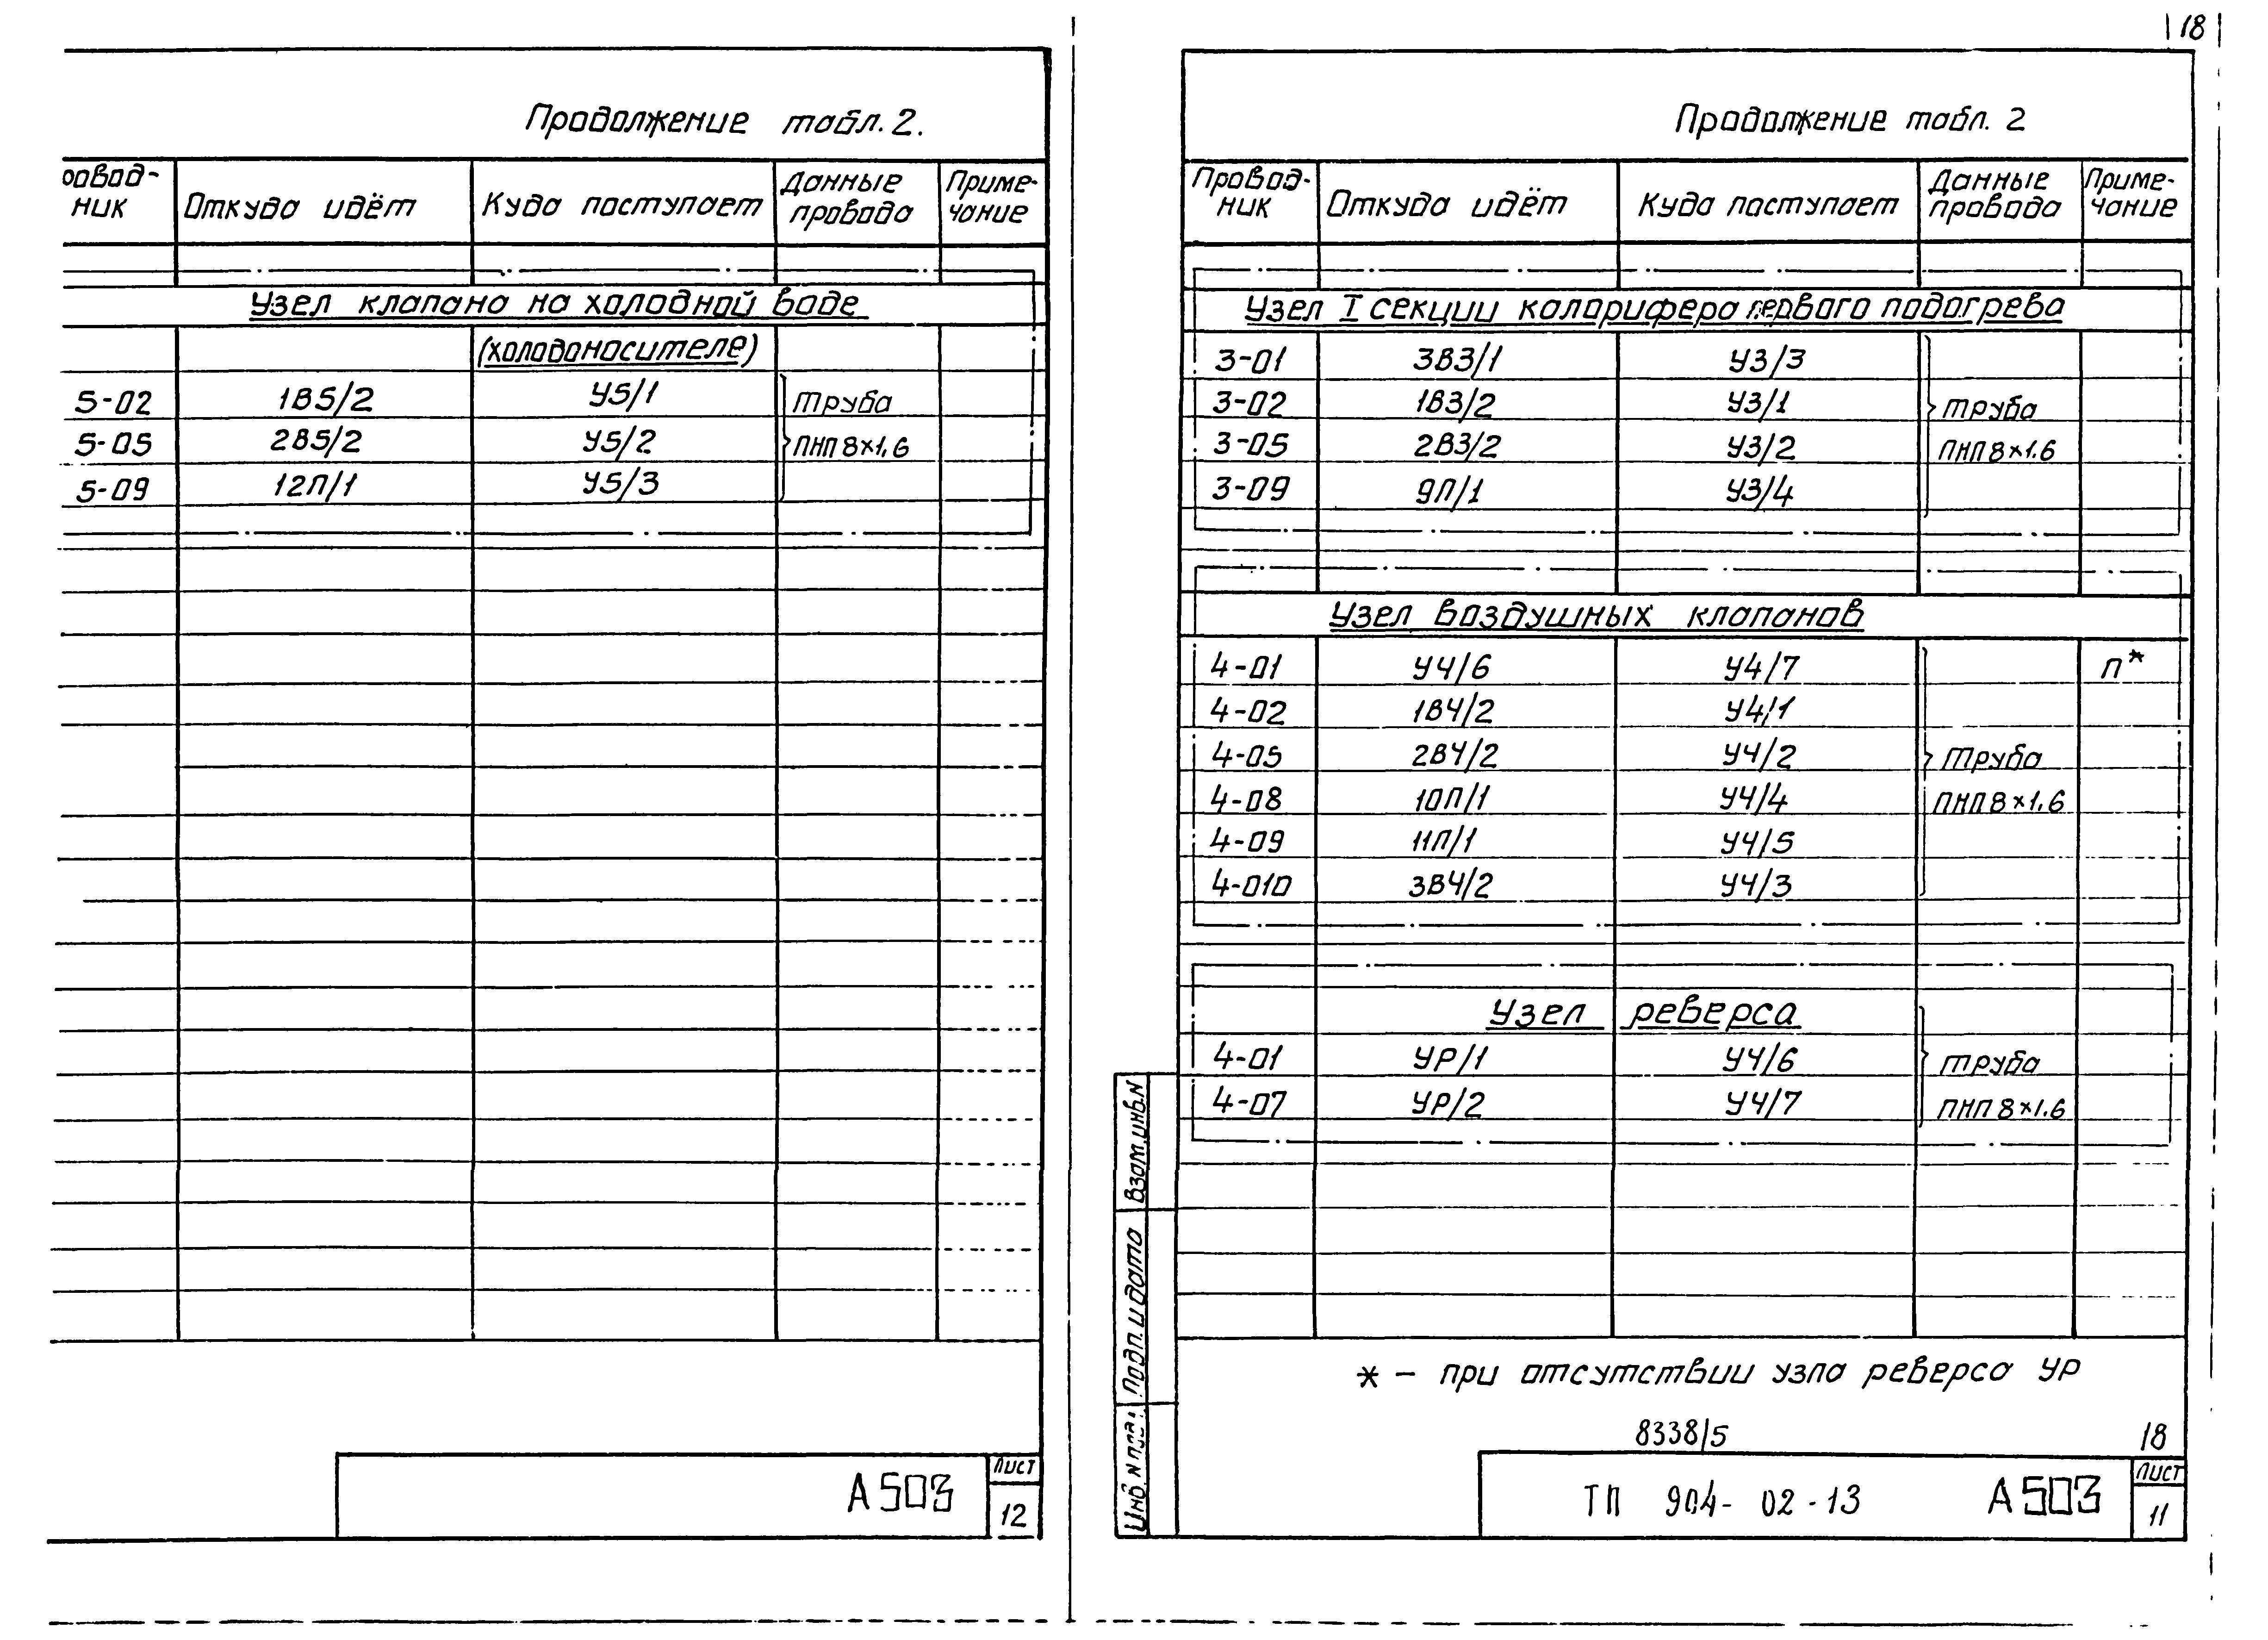 18
Продолжение табл. 2.
ровод-
ник
Откуда идёт
Куда поступает
Данные
провода
Приме-
чание
Узел клапана на холодной воде
(холодоносителе)
5-02 1В5/2 У5/1 Труба
5-05 2В5/2 У5/2 ПНП 8×1.6
5-09 12П/1 У5/3
А503
Лист
12
Продолжение табл. 2
Провод-
ник
Откуда идёт
Куда поступает
Данные
провода
Приме-
чание
Узел I секции калорифера первого подогрева
3-01 3В3/1 У3/3
3-02 1В3/2 У3/1 Труба
3-05 2В3/2 У3/2 ПНП 8×1.6
3-09 9П/1 У3/4
Узел воздушных клапанов
4-01 У4/6 У4/7 П*
4-02 1В4/2 У4/1
4-05 2В4/2 У4/2 Труба
4-08 10П/1 У4/4 ПНП 8×1.6
4-09 11П/1 У4/5
4-010 3В4/2 У4/3
Узел реверса
4-01 УР/1 У4/6 Труба
4-07 УР/2 У4/7 ПНП 8×1.6
* - при отсутствии узла реверса УР
8338/5 18
ТП 904-02-13 А503
Лист
11
Взам.инв.N
Подп. и дата
Инв. N